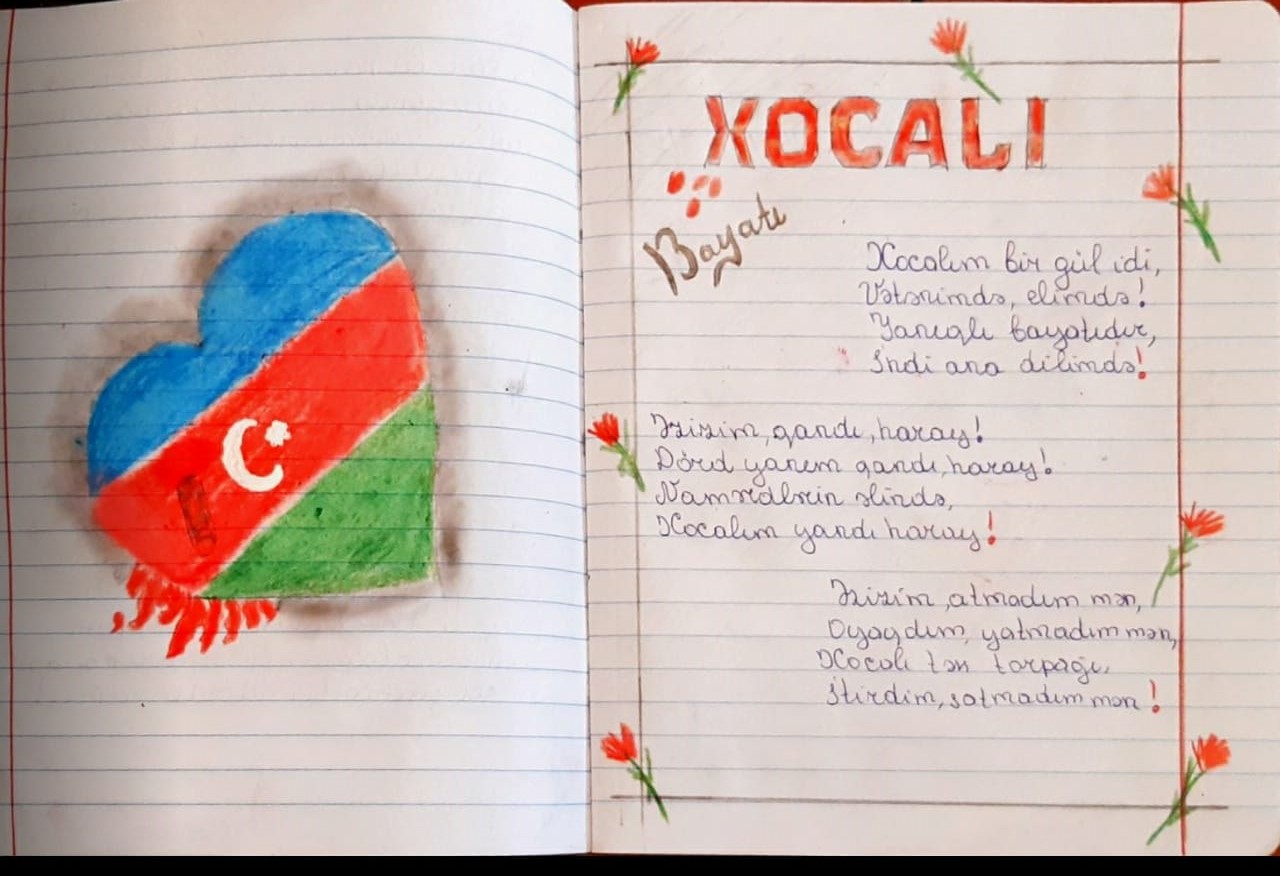 XOCALI
Bayatı
Xocalım bir gül idi,
Vətənimdə, elimdə!
Yanıqlı bayatıdır,
İndi ana dilimdə!
Əzizim, qandı, haray!
Dörd yanım qandı, haray!
Namərdlərin əlində,
Xocalım yandı haray!
Əzizim, atmadım mən,
Oyaqdım, yatmadım mən,
Xocalı tən torpağı,
İtirdim, satmadım mən!